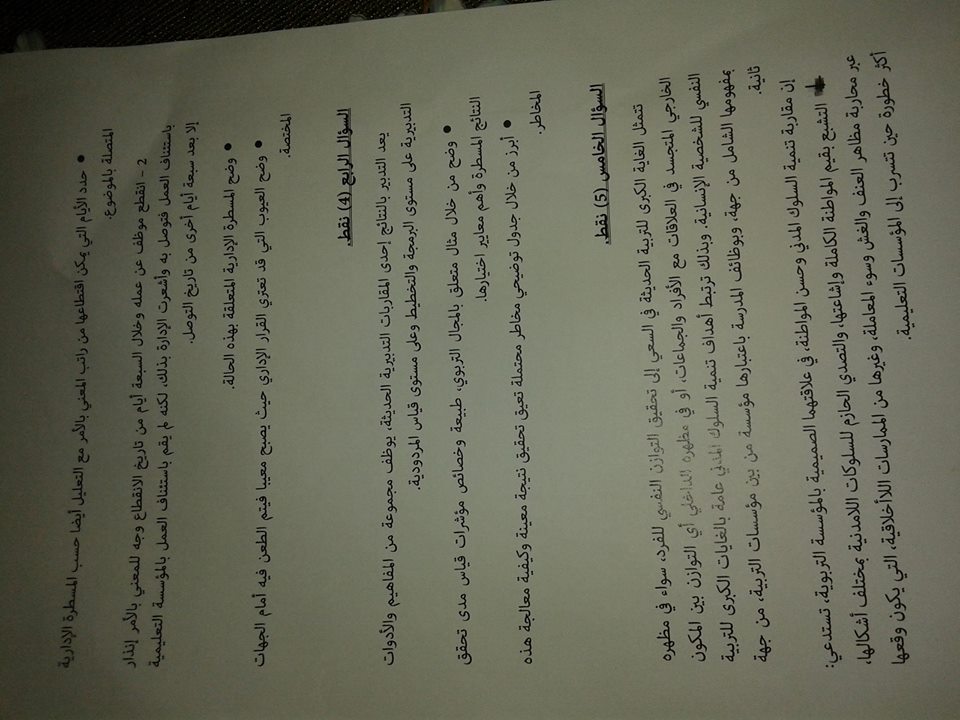 • حدد الأيام التي يمكن اقتطاعها من راتب المعني بالأمر مع التعليل أيضا حسب المسطرة الإدارية
المتصلة بالموضوع.
2 - انقطع موظف عن عمله وخلال السبعة أيام من تاريخ الانقطاع وجه للمعني بالأمر إنذار
باستئناف العمل فتوصل به وأشعرت الإدارة بذلك، لكنه لم يقم باستئناف العمل بالمؤسسة التعليمية
إلا بعد سبعة أيام أخرى من تاريخ التوصل.
• وضح المسطرة الإدارية المتعلقة بهذه الحالة.
• وضح العيوب التي قد تعتري القرار الإداري حيث يصبح معيبا فيتم الطعن فيه أمام الجهات
المختصة.
السؤال الرابع (4) نقط.
يعد التدبير بالنتائج إحدى المقاربات التدبيرية الحديثة، يوظف مجموعة من المفاهيم والأدوات
التدبيرية على مستوى البرمجة والتخطيط وعلى مستوى قياس المردودية.
• وضح من خلال مثال متعلق بالمجال التربوي، طبيعة وخصائص مؤشرات قياس مدى تحقق
النتائج المسطرة وأهم معايير اختيارها.
• أبرز من خلال جدول توضيحي مخاطر محتملة تعيق تحقيق نتيجة معينة وكيفية معالجة هذه
المخاطر.
السؤال الخامس (5) نقط.
تتمثل الغاية الكبرى للتربية الحديثة في السعي إلى تحقيق التوازن النفسي للفرد، سواء في مظهره
الخارجي المتجسد في العلاقات مع الأفراد والجماعات، أو في مظهره الداخلي أي التوازن بين المكون
النفسي للشخصية الإنسانية. وبذلك ترتبط أهداف تنمية السلوك المدني عامة بالغايات الكبرى للتربية
بمفهومها الشامل من جهة، وبوظائف المدرسة باعتبارها مؤسسة من بين مؤسسات التربية، من جهة
ثانية.
إن مقاربة تنمية السلوك المدني وحسن المواطنة، في علاقتهما الصميمية بالمؤسسة التربوية، تستدعي:
التشبع بقيم المواطنة الكاملة وإشاعتها، والتصدي الحازم للسلوكات اللامدنية بمختلف أشكالها،
عبر محاربة مظاهر العنف والغش وسوء المعاملة، وغيرها من الممارسات اللاأخلاقية، التي يكون وقعها
أكثر خطورة حين تتسرب إلى المؤسسات التعليمية.